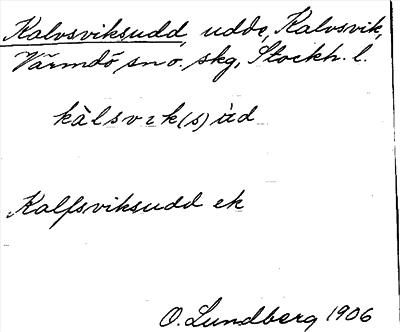 Kalvsviksudd, udde, Kalvsvik,
Värmdö sn o. skg, Stockh. l.
kàlsvɩk(s)ùd
Kalfsviksudd ek
O. Lundberg 1906